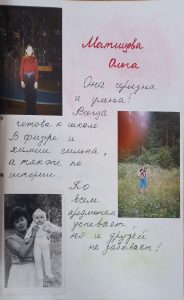 Матицова
Ольга
Она серьёзна
и умна!
Всегда
готова к школе.
В физре и
химии сильна,
а также по
истории.
По
всем
предметам
успевает,
но и друзей
не забывает!